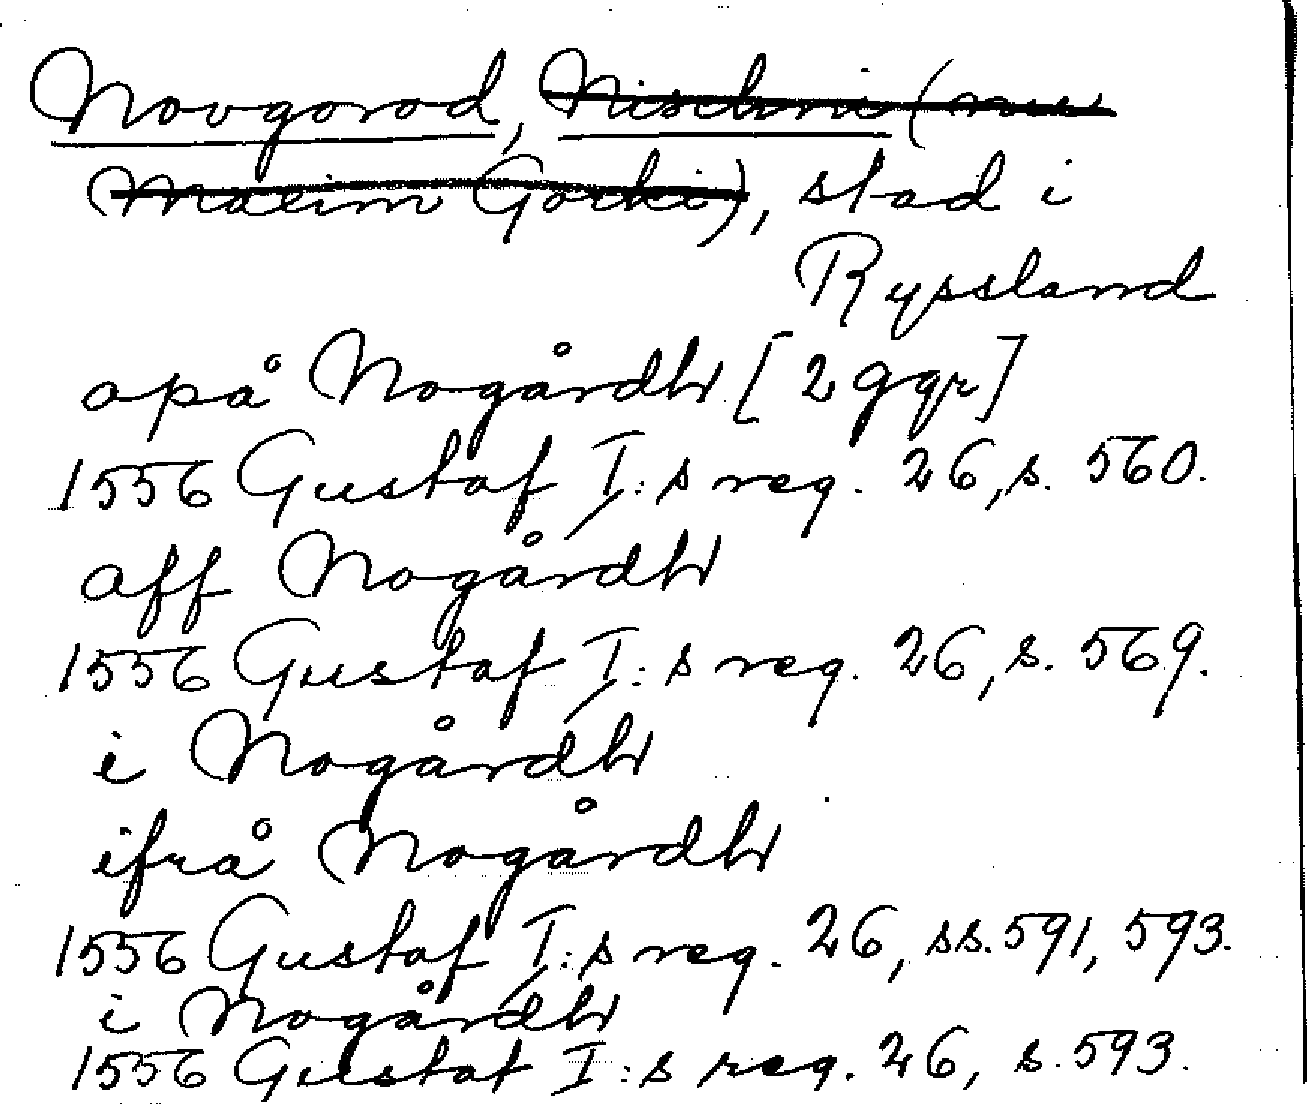 Novgorod, Nischnie (nu
Maxim Gorki), stad i
Ryssland
opå Nogårdh [2 ggr]
1556 Gustaf I:s reg. 26, s. 560.
aff Nogårdh
1556 Gustaf I:s reg. 26, s. 569.
i Nogårdh
ifrå Nogårdh
1556 Gustaf I:s reg. 26, ss. 591, 593.
i Nogårdh
1556 Gustaf I:s reg. 26, s. 593.